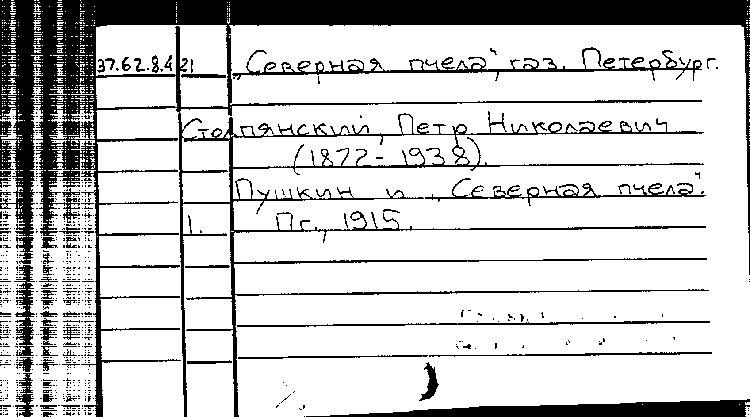 37.62.8.4 21 „Северная пчела", газ. Петербург.
Столпянский, Петр Николаевич
(1872-1938).
Пушкин и „Северная пчела".
1. Пг., 1915.